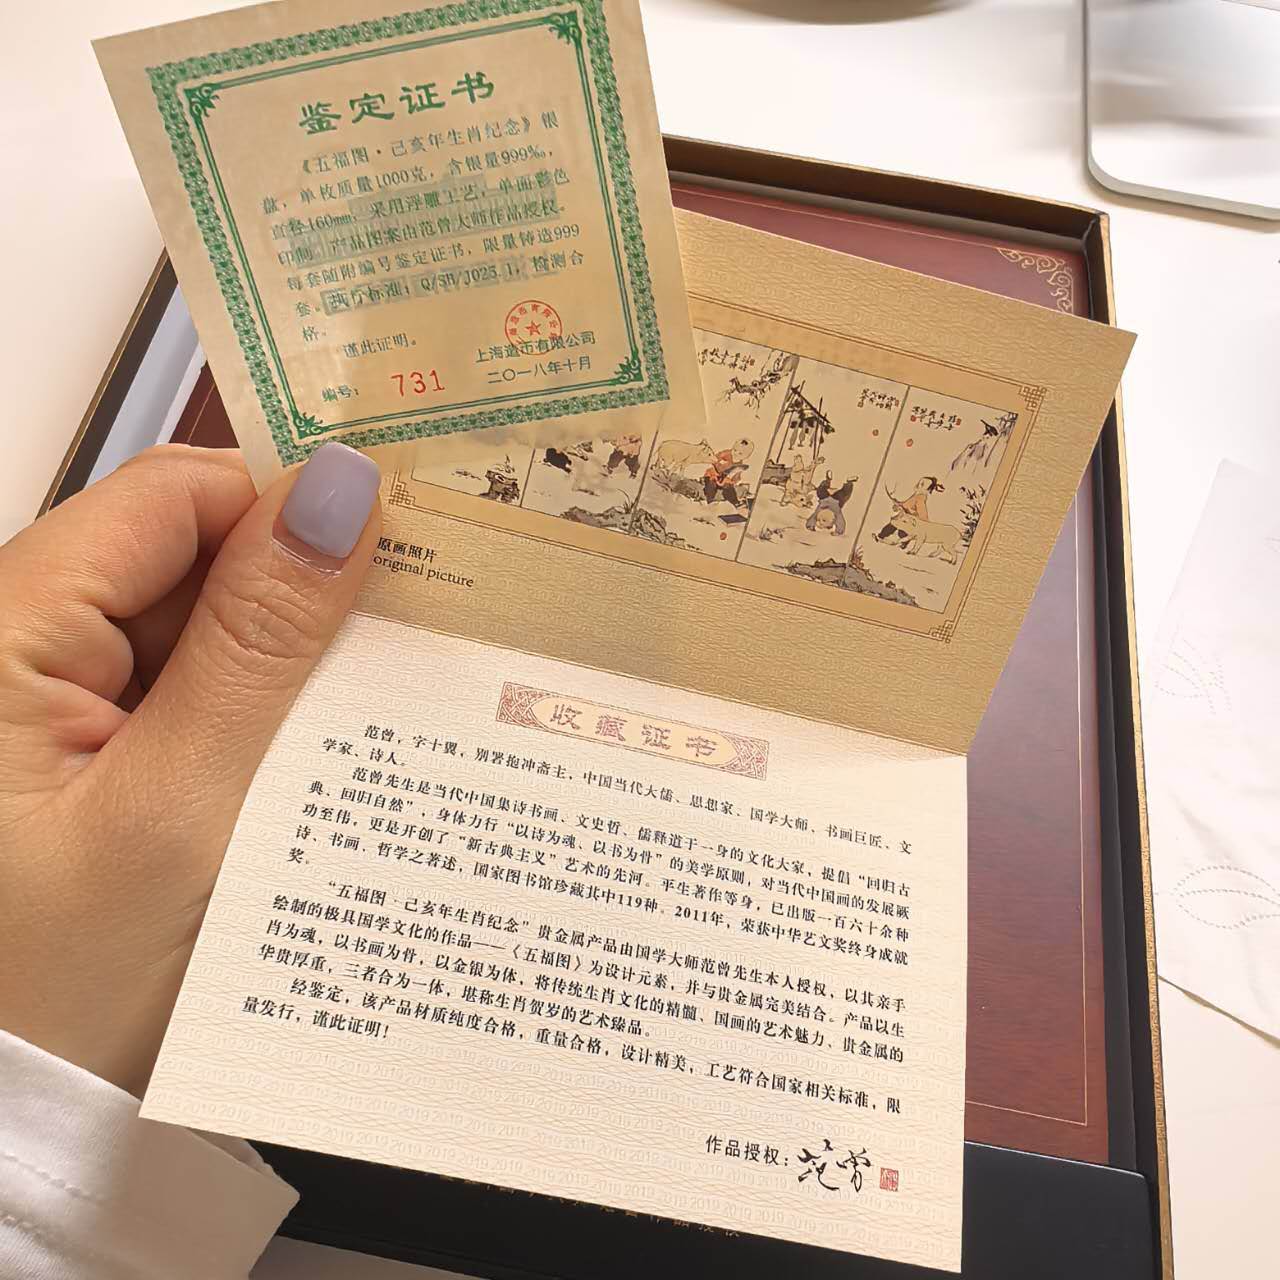 鉴定证书
《五福图·己亥年生肖纪念》银
盘，单枚质量1000克，含银量999‰，
直径160mm，采用浮雕工艺，单面彩色
印制，产品图案由范曾大师作品授权。
每套随附编号鉴定证书，限量铸造999
套。执行标准：Q/SB/J025.1，检测合
格。
谨此证明。
上海造币有限公司
二〇一八年十月
编号：
731
原画照片
original picture
收藏证书
范曾，字十翼，别署抱冲斋主，中国当代大儒、思想家、国学大师、书画巨匠、文
学家、诗人。
范曾先生是当代中国集诗书画、文史哲、儒释道于一身的文化大家，提倡“回归古
典、回归自然”，身体力行“以诗为魂、以书为骨”的美学原则，对当代中国画的发展厥
功至伟，更是开创了“新古典主义”艺术的先河。平生著作等身，已出版一百六十余种
诗、书画、哲学之著述，国家图书馆珍藏其中119种。2011年，荣获中华艺文奖终身成就
奖。
“五福图·己亥年生肖纪念”贵金属产品由国学大师范曾先生本人授权，以其亲手
绘制的极具国学文化的作品——《五福图》为设计元素，并与贵金属完美结合。产品以生
肖为魂，以书画为骨，以金银为体，将传统生肖文化的精髓、国画的艺术魅力、贵金属的
华贵厚重，三者合为一体，堪称生肖贺岁的艺术臻品。
经鉴定，该产品材质纯度合格，重量合格，设计精美，工艺符合国家相关标准，限
量发行，谨此证明！
作品授权：范曾